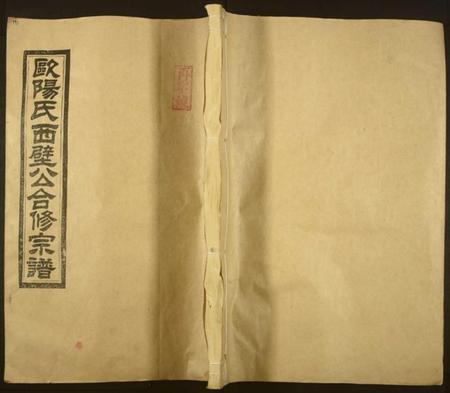 歐陽氏西壁公合修宗譜